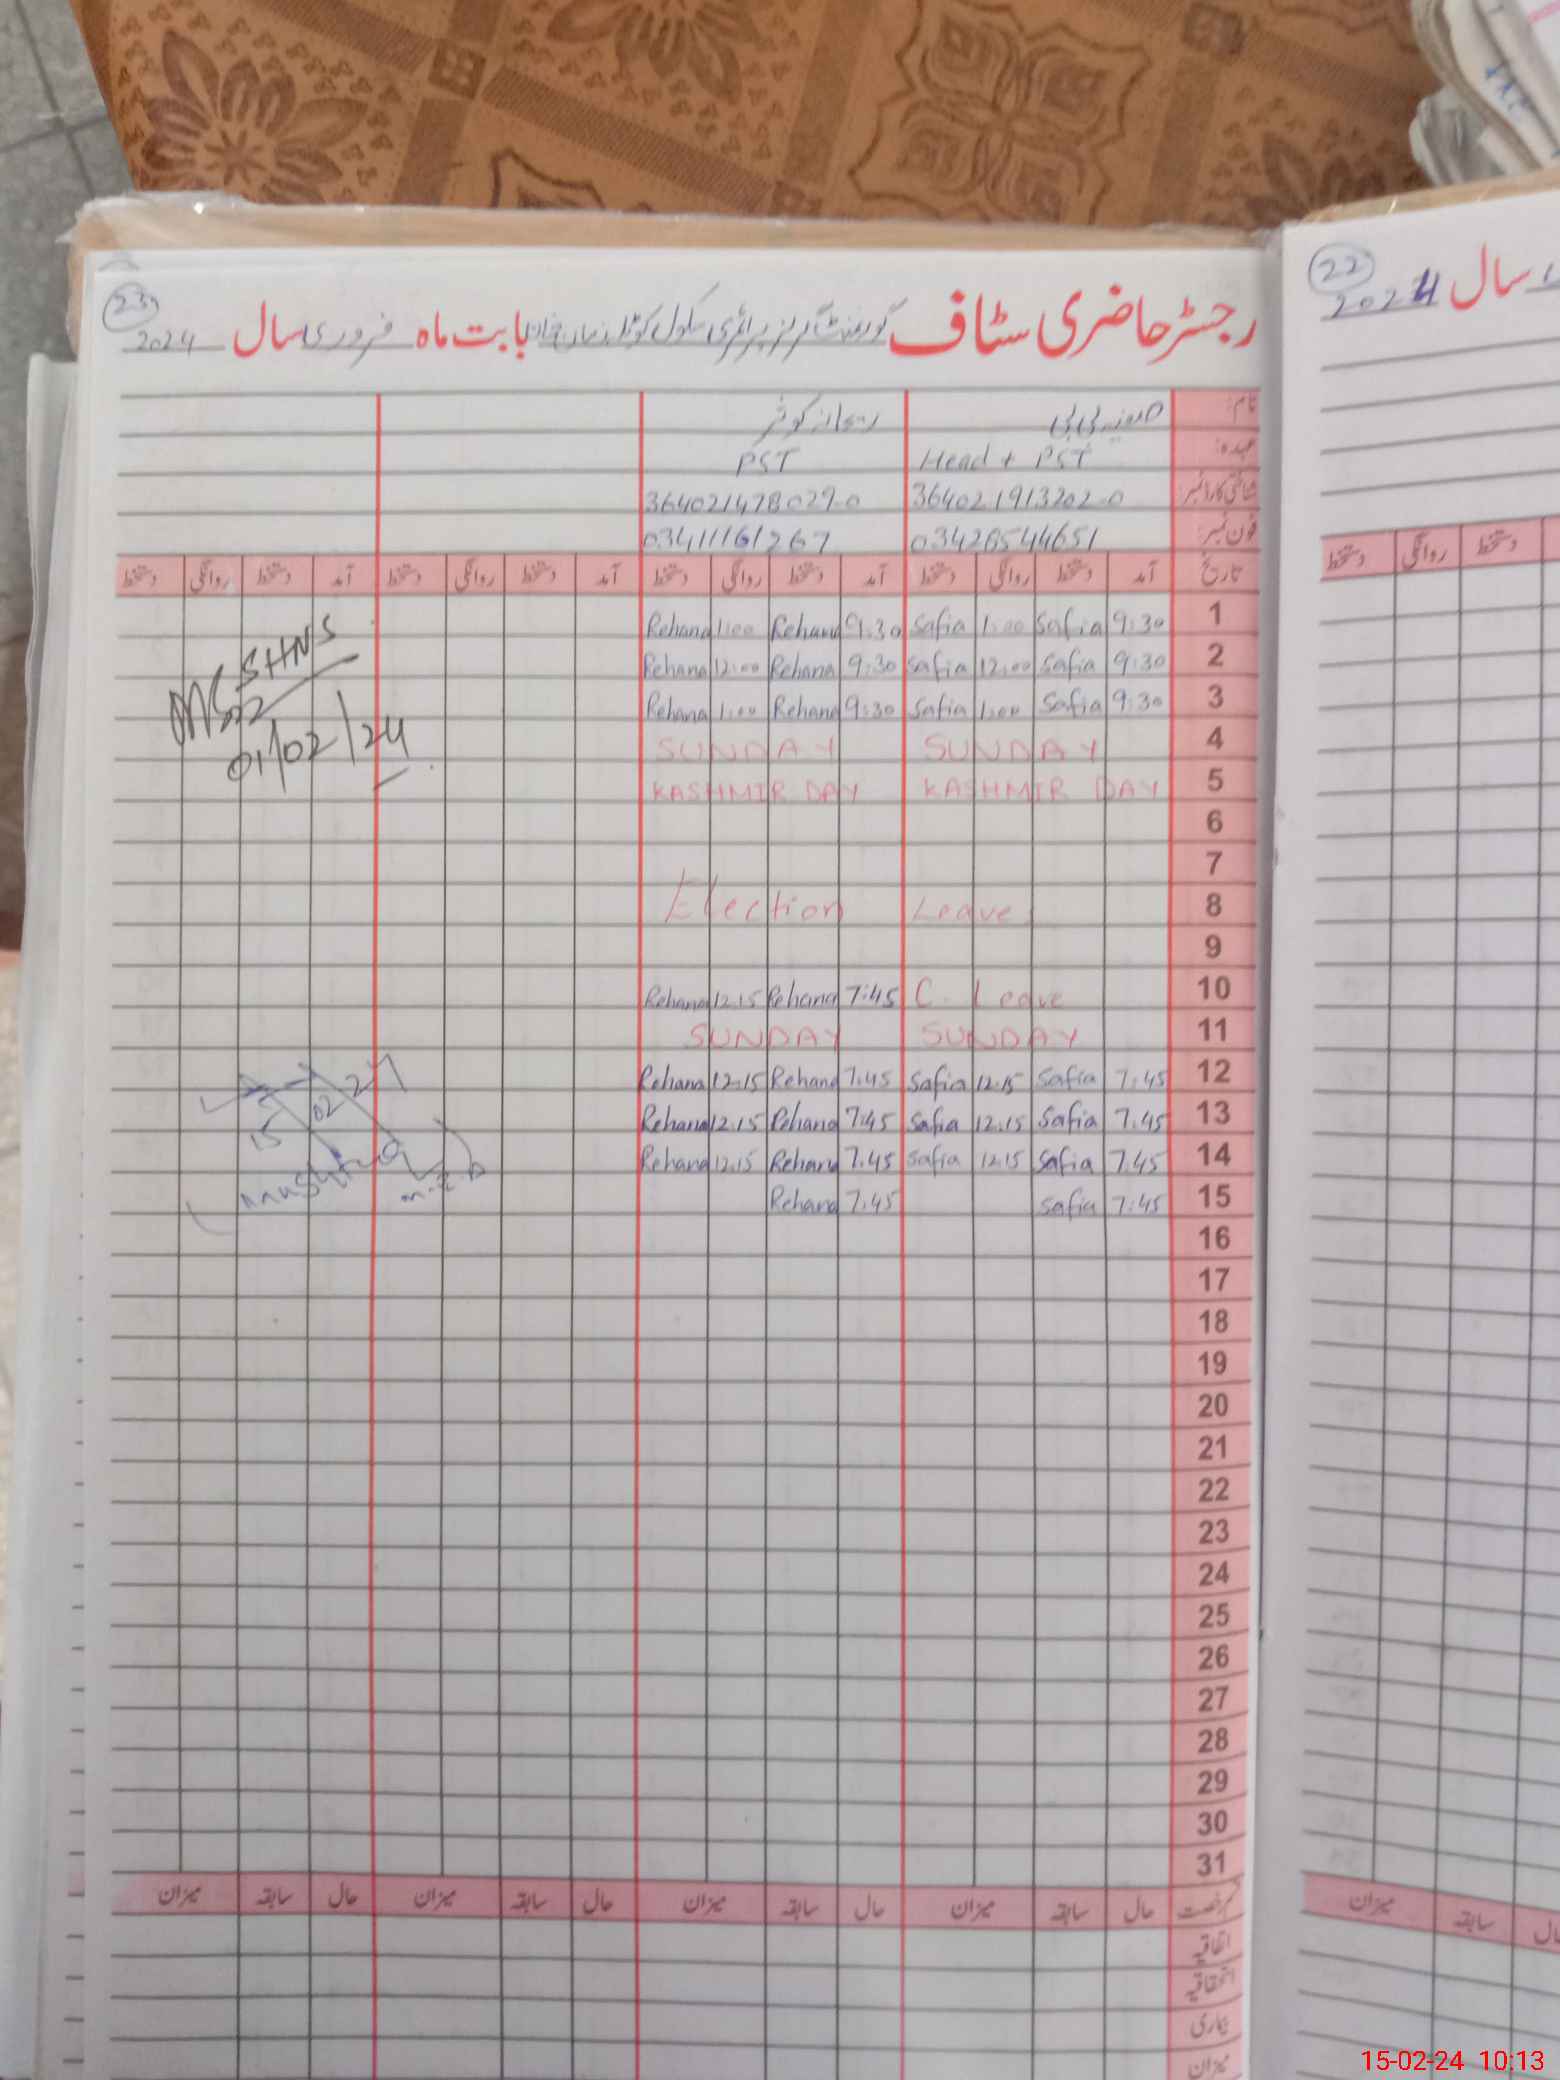 23
رجسٹر حاضری سٹاف گورنمنٹ گرلز پرائمری سکول بابت ماہ فروری سال 2024
نام: صفیہ بی بی ریحانہ کوثر
عہدہ: Head + PST PST
شناختی کارڈ نمبر: 364021913202-0 364021478029-0
فون نمبر: 03426544651 03411161267
تاریخ آمد دستخط روانگی دستخط آمد دستخط روانگی دستخط آمد دستخط روانگی دستخط آمد دستخط روانگی دستخط
1 9:30 Safia 1:00 Safia 9:30 Rehana 1:00 Rehana
2 9:30 Safia 12:00 Safia 9:30 Rehana 12:00 Rehana
3 9:30 Safia 1:00 Safia 9:30 Rehana 1:00 Rehana
4 SUNDAY SUNDAY
5 KASHMIR DAY KASHMIR DAY
6
7
8 Election Leave
9
10 C. Leave 7:45 Rehana 12.15 Rehana
11 SUNDAY SUNDAY
12 7:45 Safia 12.15 Safia 7.45 Rehana 12.15 Rehana
13 7.45 Safia 12.15 Safia 7:45 Rehana 12.15 Rehana
14 7.45 Safia 12.15 Safia 7.45 Rehana 12.15 Rehana
15 7:45 Safia 7.45 Rehana
16
17
18
19
20
21
22
23
24
25
26
27
28
29
30
31
SHNS
01/02/24
15 02 24
قسم رخصت حال سابقہ میزان حال سابقہ میزان حال سابقہ میزان حال سابقہ میزان
اتفاقیہ
استحقاقیہ
بیماری
میزان
22
سال 2024
دستخط روانگی دستخط
میزان سابقہ حال
15-02-24 10:13